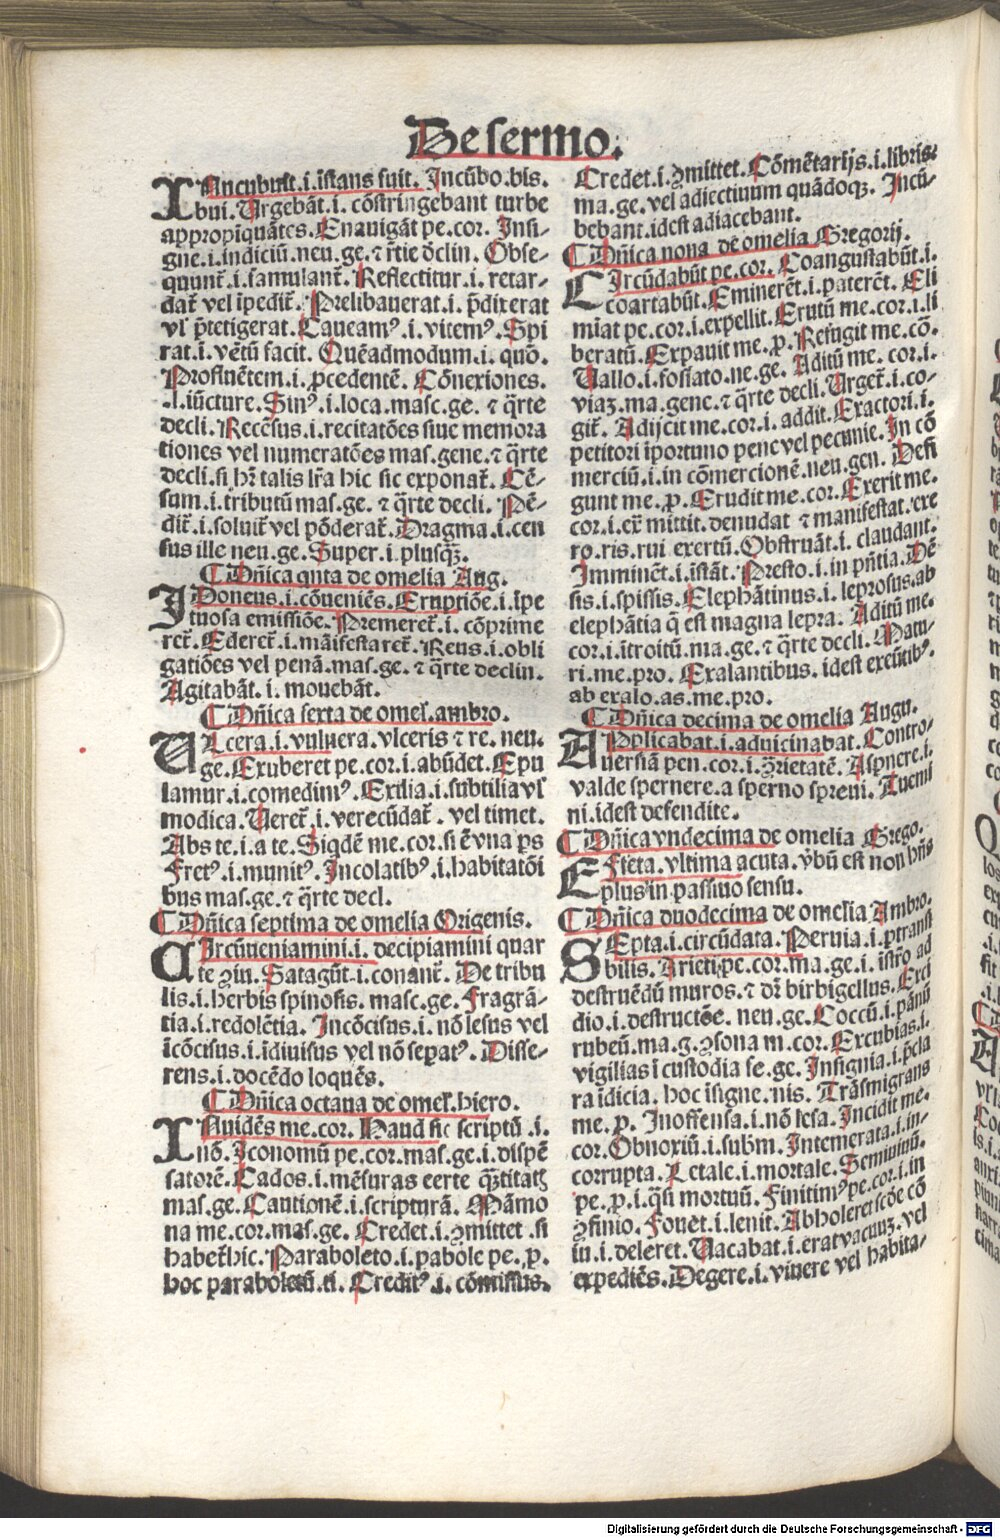 De sermo.
INcubuit.i.īstans fuit. Incūbo.bis.
bui. Urgebāt.i. cōstringebant turbe
appropiquātes. Enauigāt pe.cor. Insi-
gne.i.indiciū.neu.ge.⁊ r̄tie dclin. Obse-
quunt̄.i.famulant̄. Reflectitur.i.retar-
dat̄ vel īpedit̄. Prelibauerat.i.p̄dixerat
vl' p̄tetigerat. Caueamꝰ.i.vitemꝰ. Spi
rat.i.vētū facit. Quēadmodum.i. quō.
Profluētem.i.ꝓcedentē. Cōnexiones.
.i.iūcture. Sinꝰ.i.loca.masc.ge. ⁊ q̄rte
decli. Recēsus.i.recitatōes siue memora
tiones vel numeratōes mas.gene.⁊ q̄rte
decli.si hꝫ talis lr̄a hic sic exponat̄. Cē-
sum.i.tributū mas.ge. ⁊ q̄rte decli. Pē-
dit̄.i.soluit̄ vel pōderat̄. Dragma.i.cen
sus ille neu.ge. Super.i.plusq̄ꝫ.
¶ Dñica qnta de omelia Aug.
IDoneus.i.cōueniēs. Eruptiōe.i.īpe
tuosa emissiōe. Premeret̄.i. cōprime
ret̄. Ederet̄.i.māifestaret̄. Reus.i.obli
gatiōes vel penā.mas.ge. ⁊ q̄rte declin.
Agitabāt.i. mouebāt.
¶ Dñica sexta de omel'.ambro.
ULcera.i.vulnera.vlceris ⁊ re. neu.
ge. Exuberet pe.cor.i.abūdet. Epu
lamur.i.comedimꝰ. Exilia.i.subtilia vl'
modica. Ueret̄.i.verecūdat̄. vel timet.
Abs te.i.a te. Siqdē me.cor.si ē vna ps
Fretꝰ.i.munitꝰ. Incolatibꝰ.i.habitatōi
bus mas.ge.⁊ q̄rte decl.
¶ Dñica septima de omelia Origenis.
CIrcūueniamini.i. decipiamini quar
te ꝯiu. Satagūt.i.conant̄. De tribu
lis.i.herbis spinosis. masc.ge. Fragrā-
tia.i.redolētia. Incōcisus.i.nō lesus vel
īcōcisus.i.īdiuisus vel nō sepatꝰ. Disse-
rens.i.docēdo loquēs.
¶ Dñica octaua de omel'.hiero.
INuidēs me.cor. Haud sic scriptū .i.
nō. Iconomū pe.cor.mas.ge.i.dispē
satorē. Cados.i.mēsuras certe q̄ꝫtitatꝫ
mas.ge. Cautionē.i.scripturā. Māmo
na me.cor.mas.ge. Credet.i.ꝯmittet .si
habet̄ hic. Paraboleto.i.pabole pe. ꝓ.
hoc paraboletū.ti. Creditꝰ .i. cōmissus.
Credet.i.ꝯmittet. Cōmētarijs.i.libris.
ma.ge. vel adiectiuum quādoqꝫ. Incū-
bebant.idest adiacebant.
¶ Dñica nona de omelia Gregorij.
CIrcūdabūt pe.cor. Coangustabūt.i.
coartabūt. Eminerēt.i.paterēt. Eli
mīat pe.cor.i.expellit. Erutū me.cor.i.li
beratū. Expauit me. ꝓ. Refugit me.cō.
Uallo.i.fossato.ne.ge. Aditū me. cor.i.
viaꝫ.ma.gene.⁊ q̄rte decli. Urget̄.i.co-
git̄. Adijcit me.cor.i. addit. Exactori.i.
petitori īportuno pene vel pecunie. In cō
merciū.i.in cōmercionē.neu.gen. Defi
gunt me. ꝓ. Erudit me.cor. Exerit me.
cor.i.ex̄ mittit.denudat ⁊ manifestat.exe
ro.ris.rui exertū. Obstruāt.i. claudant.
Imminēt.i.īstāt. Presto.i.in p̄ntia. Dē
sis.i.spissis. Elephātinus.i. leprosus.ab
elephātia q̄ est magna lepra. Aditū me.
cor.i.ītroitū.ma.ge.⁊ q̄rte decli. Matu-
ri.me.pro. Exalantibus. idest exeūtibꝰ.
ab exalo.as.me.pro.
¶ Dñica decima de omelia Augu.
APplicabat.i.aduicinabat. Contro-
uersiā pen.cor.i.ꝯrietatē. Aspnere.i.
valde spernere.a sperno spreui. Tuemi
ni.idest defendite.
¶ Dñica vndecima de omelia Grego.
EFfeta.vltima acuta.ybū est non hn̄s
plus in passiuo sensu.
¶ Dñica duodecima de omelia Ambro.
SEpta.i.circūdata. Peruia.i.ptransi
bilis. Arieti pe.cor.ma.ge.i. īstro ad
destruēdū muros.⁊ dr̄ birbigellus. Exci
dio.i.destructōe. neu.ge. Coccū.i.pānū
rubeū.ma.g.ꝯsona m.cor. Excubias.i.
vigilias ī custodia fe.ge. Insignia.i.p̄cla
ra īdicia. hoc īsigne.nis. Trāsmigrans
me. ꝓ. Inoffensa.i.nō lesa. Incidit me.
cor. Obnoxiū.i.subm. Intemerata.i.in-
corrupta. Letale.i.mortale. Semiuiuū.
pe. ꝓ.i.qsi mortuū. Finitimꝰ pe.cor.i.in
ꝯfinio. Fouet.i.lenit. Abholeret scōe cō
iu.i.deleret. Uacabat.i.erat vacuuꝫ.vel
expediēs. Degere.i.viuere vel habita-
Digitalisierung gefördert durch die Deutsche Forschungsgemeinschaft - DFG